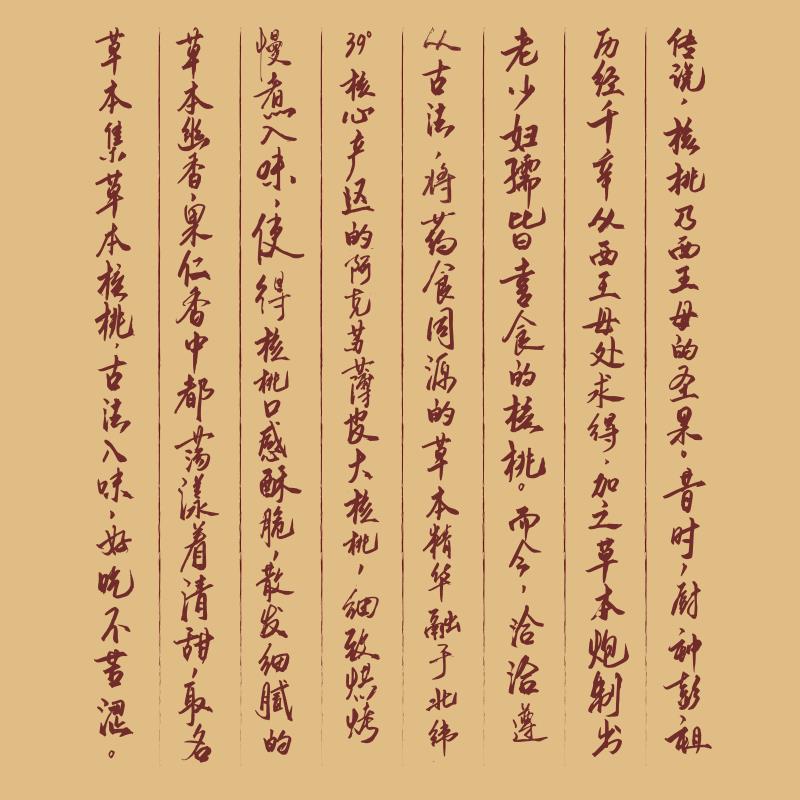 传说，核桃乃西王母的圣果。昔时，厨神彭祖
历经千辛从西王母处求得，加之草本炮制出
老少妇孺皆喜食的核桃。而今，洽洽遵
从古法，将药食同源的草本精华融于北纬
39°核心产区的阿克苏薄皮大核桃，细致烘烤
慢煮入味，使得核桃口感酥脆，散发细腻的
草本幽香，果仁香中都荡漾着清甜，取名
草本集草本核桃，古法入味，好吃不苦涩。